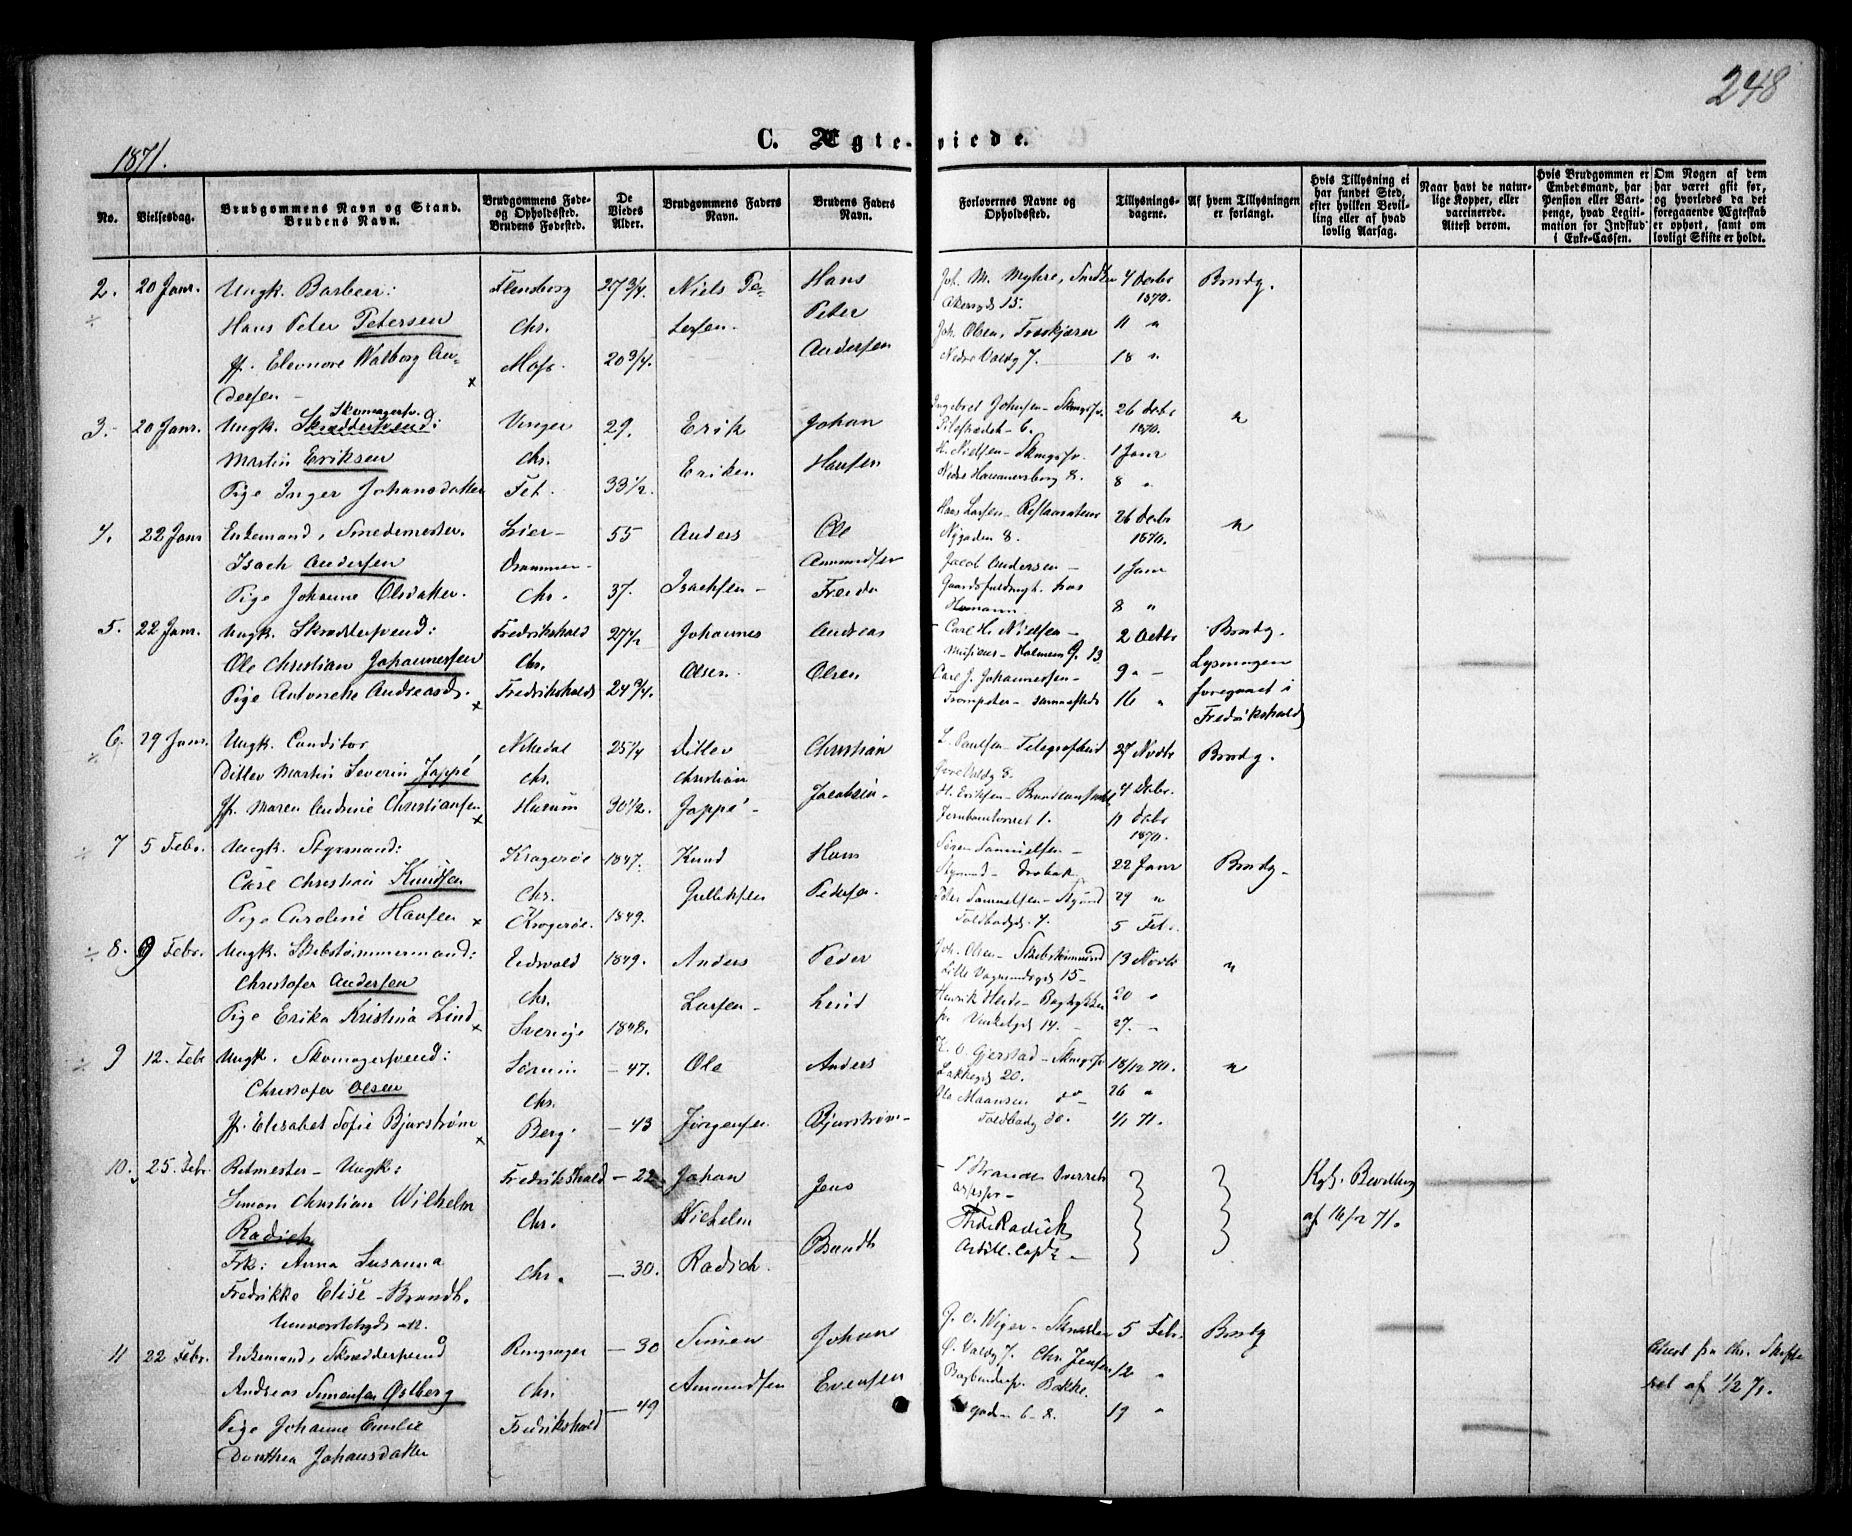 248
1871.
C. Ægte-viede.
No.
Vielsesdag.
Brudgommens Navn og Stand.
Brudens Navn.
Brudgommens Føde-
og Opholdssted.
Brudens Fødested.
De
Viedes
Alder.
Brudgommens Faders
Navn.
Brudens Faders
Navn.
Forlovernes Navne og
Opholdssted.
Tillysnings-
dagene.
Af hvem Tillysningen
er forlangt.
Hvis Tillysning ei
har fundet Sted,
efter hvilken Bevil-
ling eller af hvad
lovlig Aarsag.
Naar havt de natur-
lige Kopper, eller
vaccinerede.
Attest derom.
Hvis Brudgommen er
Embedsmand, har
Pension eller Vart-
penge, hvad Legiti-
mation for Indskud
i Enke-Cassen.
Om Nogen af dem
har været gift før,
og hvorledes da det
foregaaende Ægteskab
er ophørt, samt om
lovligt Skifte er holdt.
2. 20 Janr. Ungk. Barbeer: Flensborg 27 3/4. Niels Pe- Hans
Hans Peter Petersen Chr. tersen. Peter
Jf. Eleonore Walborg An- Moss. 20 3/4. Andersen
dersen
Joh. M. Myhre, 4 Decbr Brudg.
Akersgd 15. 1870.
Joh. Olsen, 11 "
Nedre Voldg 7. 18 "
3. 20 Janr. Ungk. Skrædersvend: Skomagersv. Vinger 29. Erik Johan
Martin Eriksen Chr. Eriksen Hansen
Pige Inger Johansdatter Fet. 33 1/2.
Ingebret Johnsen - Skmgsv. 26 Decbr "
6. 1870.
H. Nielsen - Skmgsv. 1 Janr
Nedre Hammersborg 8. 8 "
4. 22 Janr Enkemand, Smedemester. Lier 55 Anders Ole
Isach Andersen Drammen Isachsen Ammundsen
Pige Johanne Olsdatter. Chr. 37.
Hans Larsen - Restaurateur 26 Decbr "
Nygaden 8. 1870.
Jacob Andersen - 1 Janr
hos
Homann. 8 "
5. 22 Janr. Ungk. Skræddersvend: Fredrikshald 27 1/2 Johannes Andreas
Ole Christian Johannessen Chr. Olsen. Olsen
Pige Antonette Andreasd. Fredrikshald 24 3/4.
Carl H. Nielsen - 2 Octbr Brudg.
Musicus - Holmens G. 13 Lysningen
Carl J. Johannessen - 9 " foregaaet i
Trompeter - sammesteds 16 " Fredrikshald
6. 29 Janr. Ungk. Conditor 25 1/4 Ditlev Christian
Ditlev Martin Severin Jappé Chr. Christian Jacobsen
Jf. Maren Andrine Christiansen Husum 30 1/2. Jappé
L. Paulsen - 27 Novbr Brudg.
Voldg 8.
H. Eriksen - 4 Decbr.
Jernbanetorvet 1. 11 Decbr
1870.
7 5 Febr. Ungk. Styrmand: Kragerøe 1847. Knud Hans
Carl Christian Knudsen Chr. Gulliksen Pedersen
Pige Caroline Hansen Kragerøe. 1849.
Søren Samuelsen - 22 Janr Brudg.
Styrmd - Drøbak
Samuelsen - Styrmd 29 "
Toldbodgd. 4. 5 Feb.
8. 9 Febr. Ungk. Skibstømmermand: Eidsvold 1849. Anders Peder
Christofer Andersen Chr. Larsen Lind
Pige Erika Kristina Lind Sverige 1848.
Joh. Olsen - Skibstømmermd 13 Novbr "
Lille Vognmandsgd 15
Henrik 20 "
14. 27.
9 12. Feb Ungk. Skomagersvend: Sørum 47. Ole Anders
Christofer Olsen Chr. Jørgensen Bjurstrøm
Jf. Elisabet Sofie Bjurstrøm Berg. 43
O. Gjerstad - Skmgsv 18/12 70. "
Lakkegd 20. 26 "
Ole Maansen do
Toldbodg 30. 1/1 71.
10. 25. Febr. Ritmester - Ungk: Fredrikshald 22 Johan Jens
Simon Christian Wilhelm Chr. Wilhelm Brandt
Radich Radich.
Frk: Anna Susanna Chr. 30.
Fredrikke Elise Brandt.
Universitetsgd 12.
Brandt Overrets
assessor
Fredr Radich
Artill. Capt.
Kgl. Bevilling
af 16/12 71.
11 22 Febr. Enkemand, Skræddersvend Ringsager 30 Simen Johan
Andreas Simensen Østberg Chr. Ammundsen Evensen
Pige Johanne Emilie Fredrikshald 49
Dorthea Johansdatter
J. O. Wiger - 5 Febr. Brudg
Ø. Voldg 7. Chr. Jensen 12 "
Bogbindersv. Bakke-
gaden 6-8. 19 "
Attest fra Chr. Skifte
ret af 1/2 71.